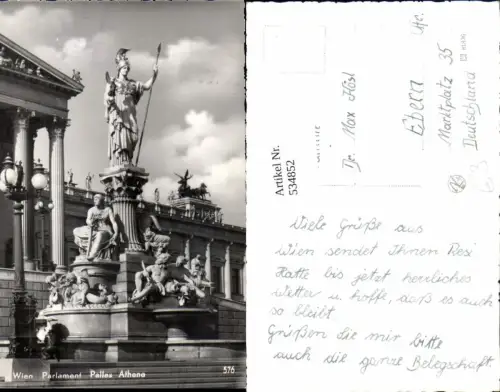 Wien Parlament Pallas Athene 576
Artikel Nr.
534852
Dr. Max Hösl
Ebern
Marktplatz 35
Deutschland
Viele Grüße aus
Wien sendet Ihnen Resi
Hatte bis jetzt herrliches
Wetter u. hoffe, daß es auch
so bleibt.
Grüßen die mir bitte
auch die ganze Belegschaft.